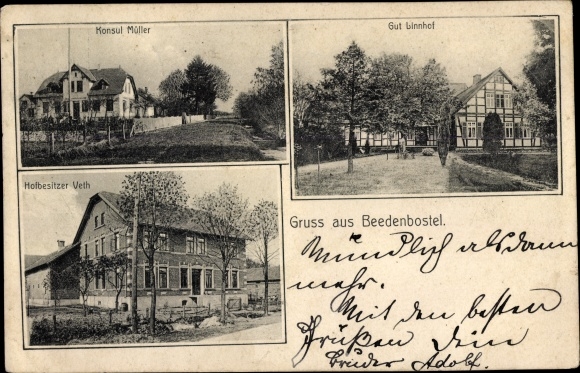 Konsul Müller
Gut Linnhof
Hofbesitzer Veth
Gruss aus Beedenbostel.
Mündlich alsdann
mehr.
Mit den besten
Grüßen Dein
Bruder Adolf.